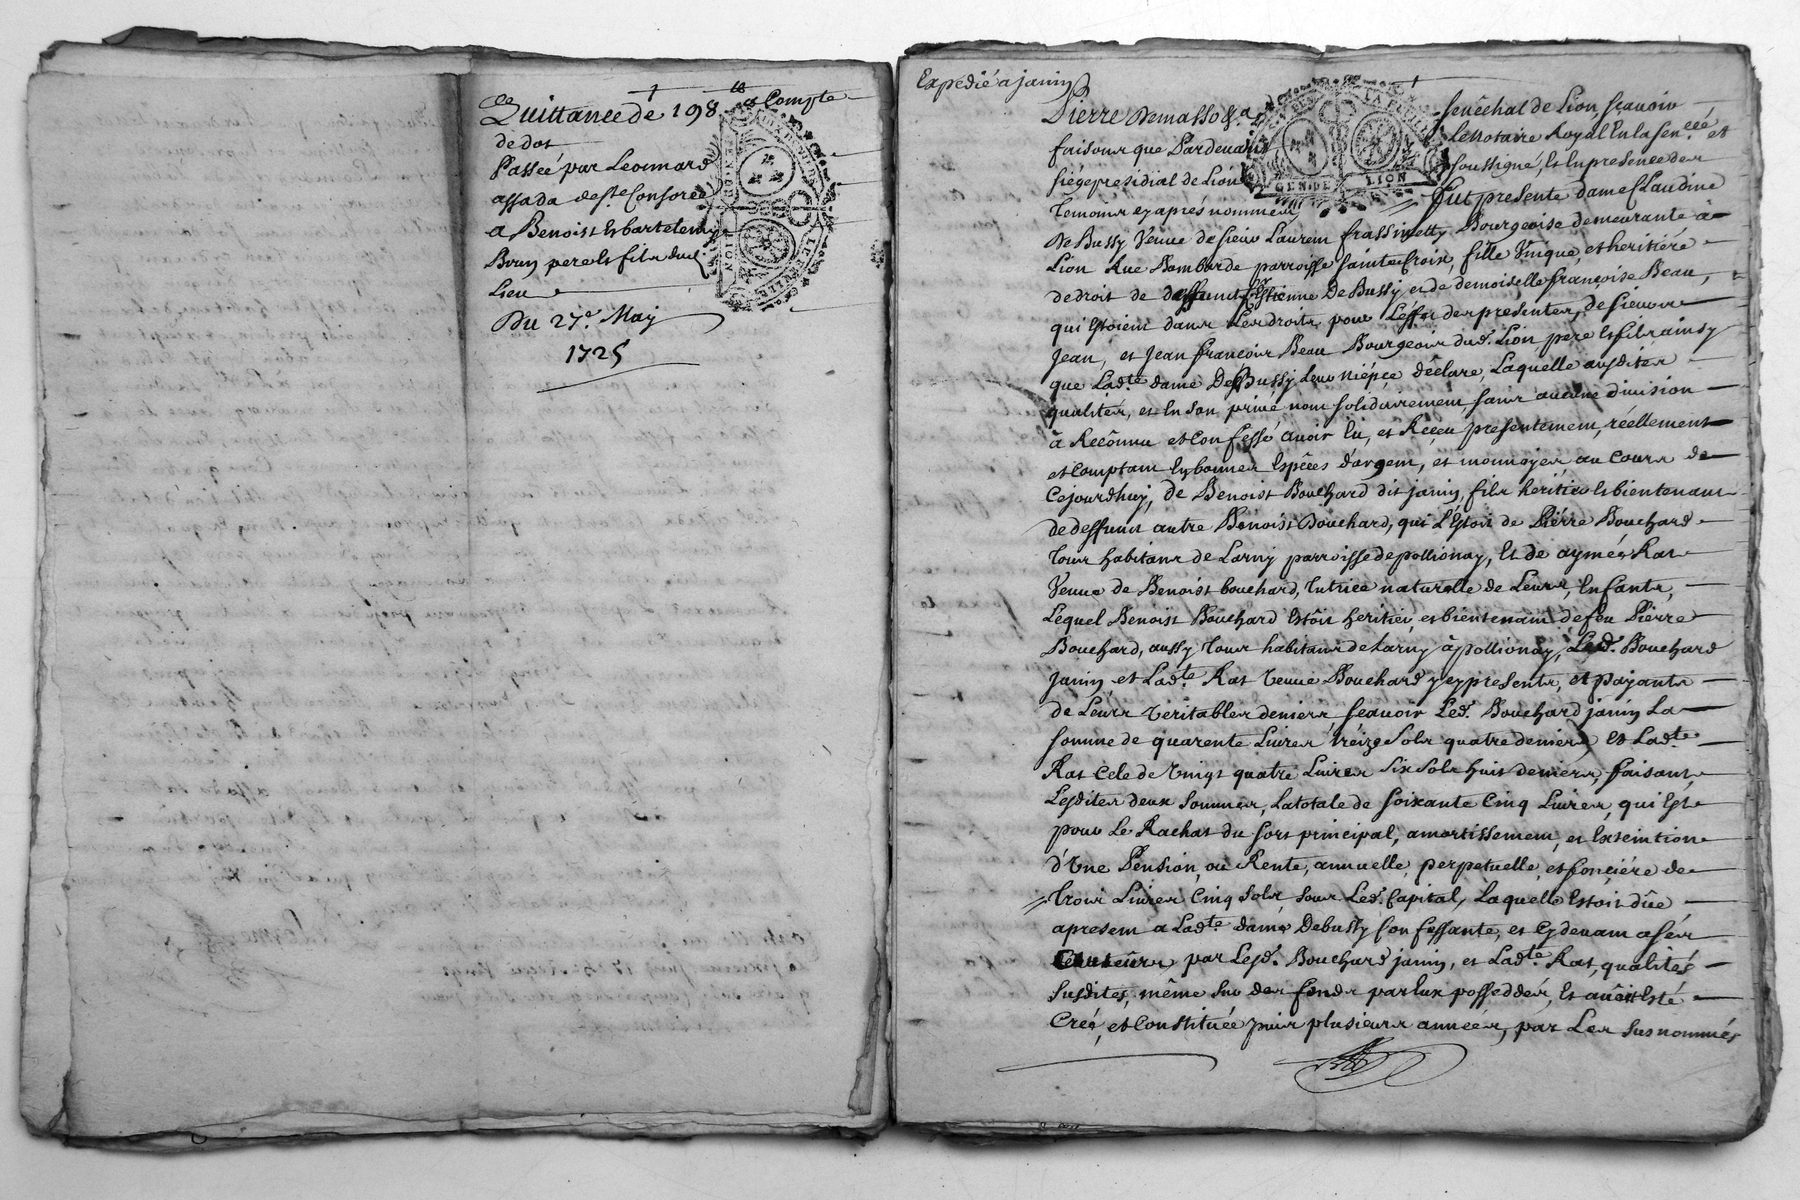 Quittance de 198 ₶ a Compte
de dot
Passée par Leonnard
assada de st. Consorce
a Benoist Et bartelemy
Brun pere Et fils dud.
Lieu
Du 27e. May
1725
Expedié a janin
Pierre Demasso &a. senêchal de Lion, sçavoir
faisons que Pardevant Le Notaire Royal En la Sen.ceé et
siége presidial de Lion soussigné, Et En presence des
temoins cy aprés nommés, fut presente dame Claudine
De Bussy Veuve de sieur Laurent frassinetty Bourgeoise demeurante â
Lion Rue Bombarde parroisse sainte Croix, fille Vnique, et heritiére
de droit de deffunt Estienne De Bussy, et de demoiselle françoise Beau,
qui Estoient dans Les droits, pour L'effet des presentes, de sieurs
Jean, et Jean françois Beau Bourgeois dud. Lion, pere Et fils ainsy
que Lad.te dame De Bussy Leur Niépce déclare, Laquelle ausdites
qualités, et En son privé nom solidairement, sans aucune division
â Recônnu et Confessé avoir Eu, et Reçeu presentement, réellement
et Comptant En bonnes Espêces d'argent, et monnoyes, au Cours de
Cejourd'huy, de Benoist Bouchard dit janin, fils heritier Et bientenant
de deffunt autre Benoist Bouchard, qui L'Estoit de Piérre Bouchard
tous habitans de Larny parroisse de pollionay, Et de aymée Rat
Veuve de Benoist bouchard, tutrice naturelle de Leurs Enfants,
Lequel Benoist Bouchard Estoit heritier, et bientenant de feu Pierre
Bouchard, aussy tous habitans de Larny â pollionay, Led. Bouchard
janin, et Lad.te Rat Veuve Bouchard y cy presents, et payants
de Leurs Veritables deniers, sçavoir Led. Bouchard janin La
somme de quarente Livres treize sols quatre deniers, Et Lad.te
Rat Cele de Vingt quatre Livres six sols huit deniers, faisant
Lesdites deux sommes, La totale de soixante Cinq Livres, qui Est
pour Le Rachat du sort principal, amortissement, et Exteintion
d'Vne Pension, ou Rente, annuelle, perpetuelle, et fonciére de
trois Livres Cinq sols, sous Led. Capital, Laquelle Estoit dûe
apresent a Lad.te dame Debussy Confessante, et Cydevant a ses
auteûrs par Led. Bouchard janin, et Lad.te Rat, qualités
susdites, même sur des fonds par Eux posseddés, Et avoit Esté
Créé, et Constituée puis plusieurs années, par Les susnommés